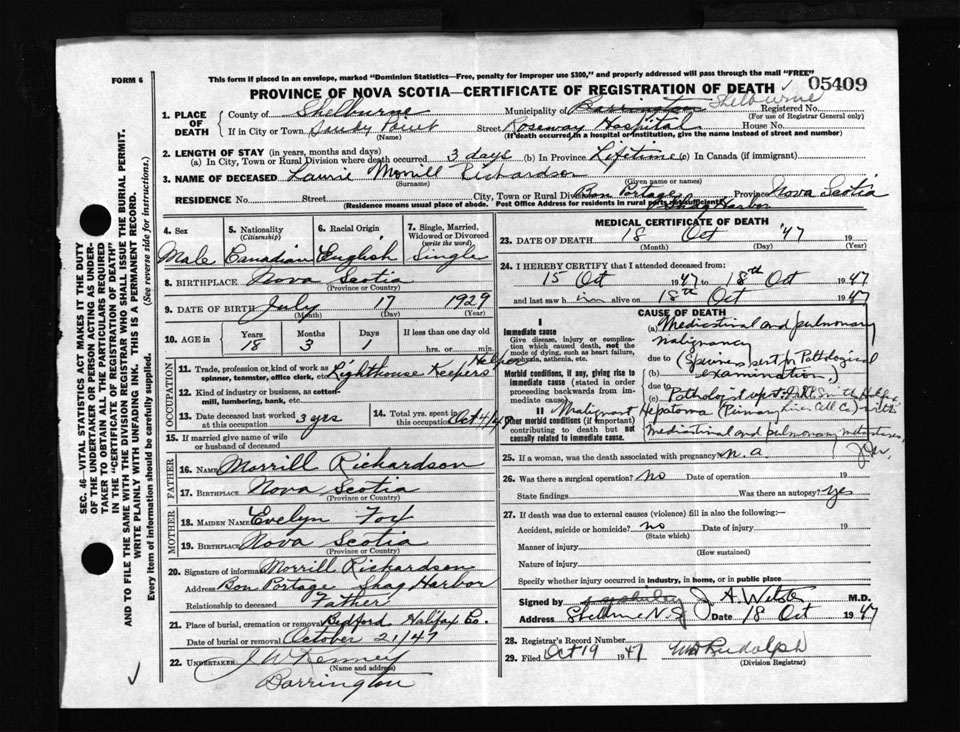 FORM 6
This form if placed in an envelope, marked "Dominion Statistics—Free, penalty for improper use $300," and properly addressed will pass through the mail "FREE"
PROVINCE OF NOVA SCOTIA—CERTIFICATE OF REGISTRATION OF DEATH
05409
1. PLACE OF DEATH
County of Shelburne Municipality of Barrington Shelburne Registered No.
(For use of Registrar General only)
If in City or Town Sandy Point Street Roseway Hospital House No.
(Name) (If death occurred in a hospital or institution, give the name instead of street and number)
2. LENGTH OF STAY (in years, months and days)
(a) In City, Town or Rural Division where death occurred 3 days (b) In Province Lifetime (c) In Canada (if immigrant)
3. NAME OF DECEASED Laurie Morrill Richardson
(Surname) (Given name or names)
RESIDENCE No. Street City, Town or Rural Division Bon Portage Province Nova Scotia
Shag Harbor
(Residence means usual place of abode. Post Office Address for residents in rural parts not sufficient)
4. Sex
5. Nationality (Citizenship)
6. Racial Origin
7. Single, Married, Widowed or Divorced (write the word)
Male Canadian English Single
8. BIRTHPLACE Nova Scotia
(Province or Country)
9. DATE OF BIRTH July 17 1929
(Month) (Day) (Year)
10. AGE in Years Months Days If less than one day
18 3 1 hrs. or min.
OCCUPATION
11. Trade, profession or kind of work as spinner, teamster, office clerk, etc. Lighthouse Keepers Helper
12. Kind of industry or business, as cotton mill, lumbering, bank, etc.
13. Date deceased last worked at this occupation 3 yrs
14. Total yrs. spent in this occupation Oct 4/4
15. If married give name of wife or husband of deceased
FATHER
16. NAME Morrill Richardson
17. BIRTHPLACE Nova Scotia
(Province or Country)
MOTHER
18. MAIDEN NAME Evelyn Fox
19. BIRTHPLACE Nova Scotia
(Province or Country)
20. Signature of informant Morrill Richardson
Address Bon Portage Shag Harbor
Relationship to deceased Father
21. Place of burial, cremation or removal Bedford Halifax Co.
Date of burial or removal October 21/47
22. UNDERTAKER J W Kenney
(Name and address)
Barrington
MEDICAL CERTIFICATE OF DEATH
23. DATE OF DEATH 18 Oct '47 19
(Month) (Day) (Year)
24. I HEREBY CERTIFY that I attended deceased from:
15 Oct 1947 to 18th Oct 1947
and last saw him alive on 18th Oct 1947
CAUSE OF DEATH
I
Immediate cause
Give disease, injury or complication which caused death, not the mode of dying, such as heart failure, asphyxia, asthenia, etc.
Morbid conditions, if any, giving rise to immediate cause (stated in order proceeding backwards from immediate).
II
Other morbid conditions (if important) contributing to death but not causally related to immediate cause.
(a) Mediastinal and pulmonary
malignancy
due to (Specimen sent for Pathological
(b) examination)
due to
(c) Pathologist
Malignant Hepatoma (Primary Liver Cell Ca) with
mediastinal and pulmonary metastases
25. If a woman, was the death associated with pregnancy? n. a
26. Was there a surgical operation? no Date of operation 19
State findings Was there an autopsy? yes
27. If death was due to external causes (violence) fill in also the following:—
Accident, suicide or homicide? no Date of injury 19
(State which)
Manner of injury
(How sustained)
Nature of injury
Specify whether injury occurred in industry, in home, or in public place
Signed by J. A. M.D.
Address Shelburne N.S. Date 18 Oct 1947
28. Registrar's Record Number
29. Filed Oct 19 1947 Rudolph
(Division Registrar)
SEC. 46—VITAL STATISTICS ACT MAKES IT THE DUTY
OF THE UNDERTAKER OR PERSON ACTING AS UNDER-
TAKER TO OBTAIN ALL THE PARTICULARS REQUIRED
IN THE "CERTIFICATE OF REGISTRATION OF DEATH"
AND TO FILE THE SAME WITH THE DIVISION REGISTRAR WHO SHALL ISSUE THE BURIAL PERMIT.
WRITE PLAINLY WITH UNFADING INK. THIS IS A PERMANENT RECORD.
Every item of information should be carefully supplied. (See reverse side for instructions.)